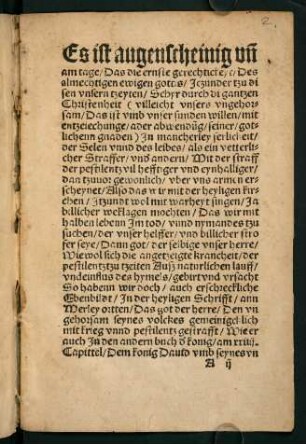 2
Es ist augenscheinig vñ
am tage/Das die ernste gerechtickeyt/Des
almechtigen ewigen gottis/Jczunder tzu di
sen vnsern tzeyten/Schyr durch di gantzen
Christenheit (villeicht vnsers vngehor-
sam/Das ist vmb vnser sunden willen/mit
entzeiechunge/ader abwendūg/seiner/got-
lichenn gnaden) Jn mancherley ferlickeit/
der Selen vnnd des leibes/als ein vetterli-
cher Straffer/vnd andern/Mit der straff
der pestilentz vil hefftiger vnd eynhalliger/
dan tzuuor gewonlich/vber vns armen er-
scheynet/Also das wir mit der heyligen kir-
chen/Jtzundt wol mit warheyt singen/Ja
billicher weklagen mochten/Das wir mit
halben lebenn Jm tod/vnnd nymandes tzu
suchen/der vnser helffer/vnd billicher stro
fer seye/Dann got/der selbige vnser herre/
Wie wol sich die angetzeigte kranckheit/der
pestilentz tzu tzeiten Auß naturlichen lauff/
vnd einfluß des hymels/geburt vnd vrsacht
So habenn wir doch/auch erschreckliche
Ebenbildt/Jn der heyligen Schrifft/ann
Merley ortten/Das got der herre/Den vn
gehorsam seynes volckes gemeinigcklich
mit krieg vnnd pestilentz gestrafft/Wie er
auch Jn den andern buch d' konig/am xxiiij.
Capittel/Dem konig Dauid vmb seynes vn
A ij